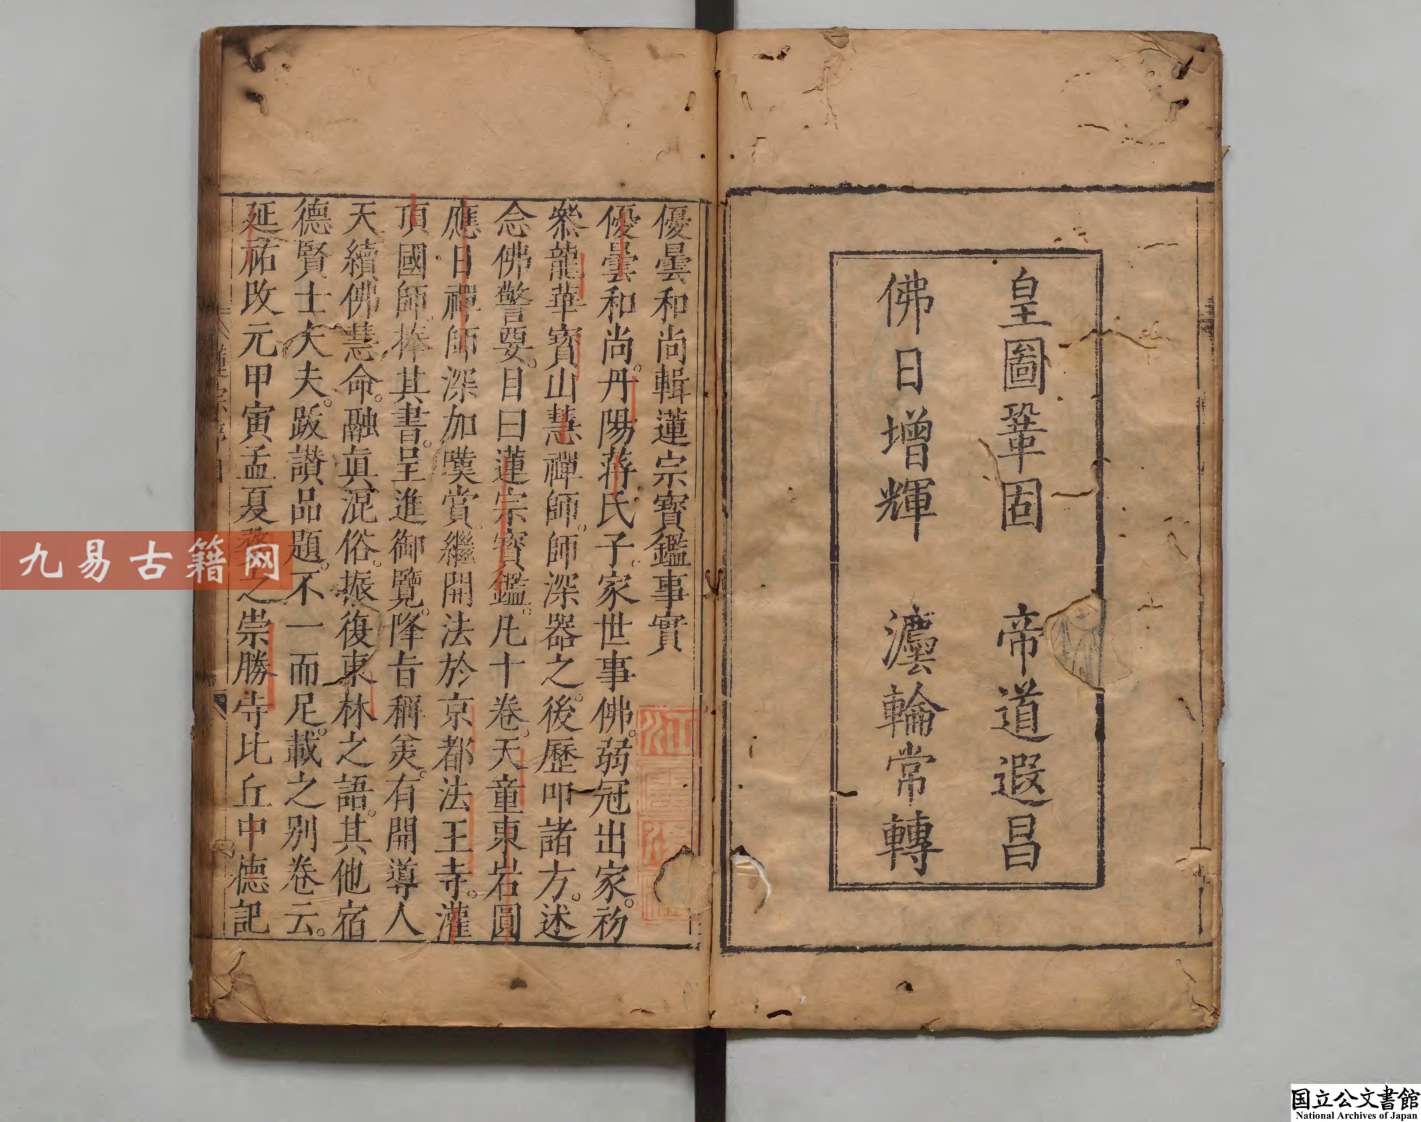 皇圖鞏固　帝道遐昌
佛日增輝　灋輪常轉
優曇和尚輯蓮宗寶鑑事實
優曇和尚。丹陽蔣氏子。家世事佛。弱冠出家。初
叅龍華寶山慧禪師。師深器之。後歷叩諸方。述
念佛警要。目曰蓮宗寶鑑。凡十卷。天童東岩圓
應日禪師深加嘆賞。繼開法於京都法王寺。灌
頂國師捧其書。呈進御覽。降旨稱美。有開導人
天續佛慧命。融眞混俗。振復東林之語。其他宿
德賢士大夫。跋讃品題。不一而足。載之別卷云。
延祐改元甲寅孟夏
之崇勝寺比丘中德記
九易古籍网
国立公文書館
National Archives of Japan